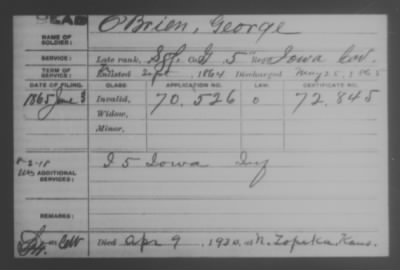 DEAD
O'Brien, George
NAME OF SOLDIER:
SERVICE: Late rank, Sgt. Co. I, 5" Reg. Iowa Cav.
TERM OF SERVICE: Enlisted Sept., 1864 Discharged May 25, 1865
DATE OF FILING. CLASS. APPLICATION NO. LAW. CERTIFICATE NO.
1865 June 3 Invalid, 70.526 0 72.845
Widow,
Minor,
8-2-18
ADDITIONAL SERVICES: I 5 Iowa Inf
REMARKS:
Died Apr 9, 1920, at N. Topeka Kans.